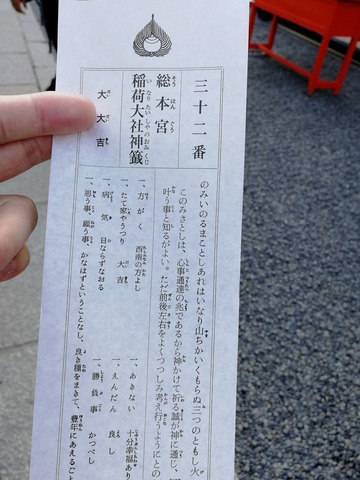 三十二番
総本宮
稲荷大社神籤
大大吉
のみいのるまことしあれはいなり山ちかいくもらぬ三つのともし火
このみさとしは、心事通達の兆であるから神かけて祈る誠が神に通じ、
叶う事と知るがよい。ただ前後左右をよくつつしみ考え行うようにとの
一、方がく 西南の方よし
一、たて家やうつり 大吉
一、病気 日ならずなおる
一、思う事、願う事、かなはずということなし、良き種をまきて、豊年にあえるごと
一、あきない 十分幸福あり
一、えんだん 良し
一、勝負事 かつべし